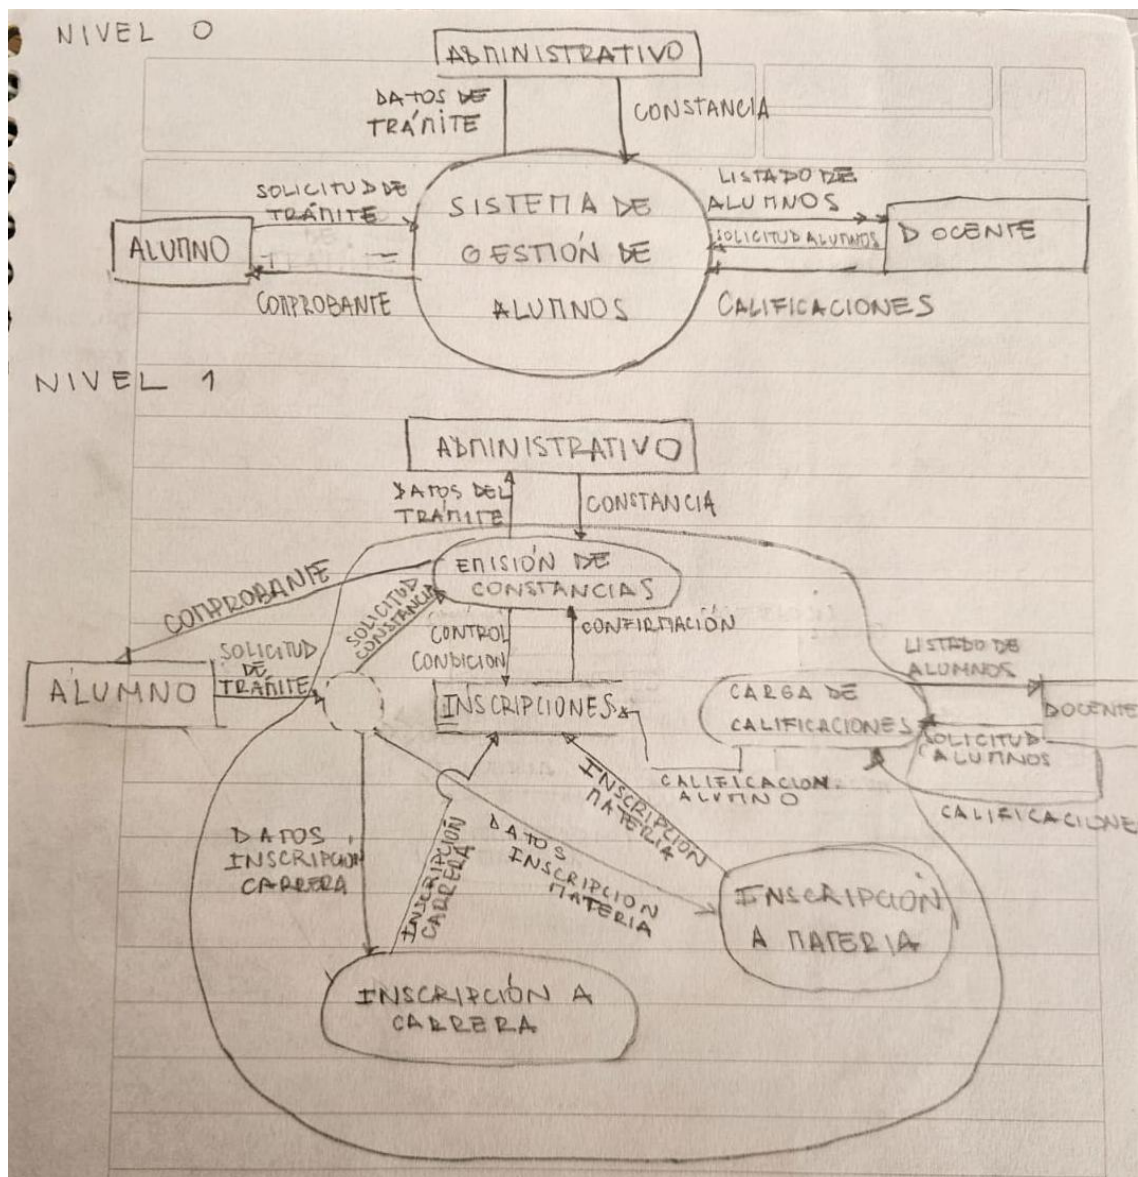 NIVEL 0
ADMINISTRATIVO
DATOS DE
TRÁMITE
CONSTANCIA
SOLICITUD DE
TRÁMITE
ALUMNO
COMPROBANTE
SISTEMA DE
GESTIÓN DE
ALUMNOS
LISTADO DE
ALUMNOS
SOLICITUD ALUMNOS
DOCENTE
CALIFICACIONES
NIVEL 1
ADMINISTRATIVO
DATOS DEL
TRÁMITE
CONSTANCIA
EMISIÓN DE
CONSTANCIAS
COMPROBANTE
SOLICITUD
CONSTANCIA
SOLICITUD
DE
TRÁMITE
ALUMNO
CONTROL
CONDICION
CONFIRMACIÓN
INSCRIPCIONES
CARGA DE
CALIFICACIONES
LISTADO DE
ALUMNOS
DOCENTE
SOLICITUD
ALUMNOS
CALIFICACIONE
CALIFICACION
ALUMNO
INSCRIPCION
MATERIA
DATOS
INSCRIPCION
CARRERA
INSCRIPCIÓN
CARRERA
DATOS
INSCRIPCION
MATERIA
INSCRIPCIÓN
A MATERIA
INSCRIPCIÓN A
CARRERA